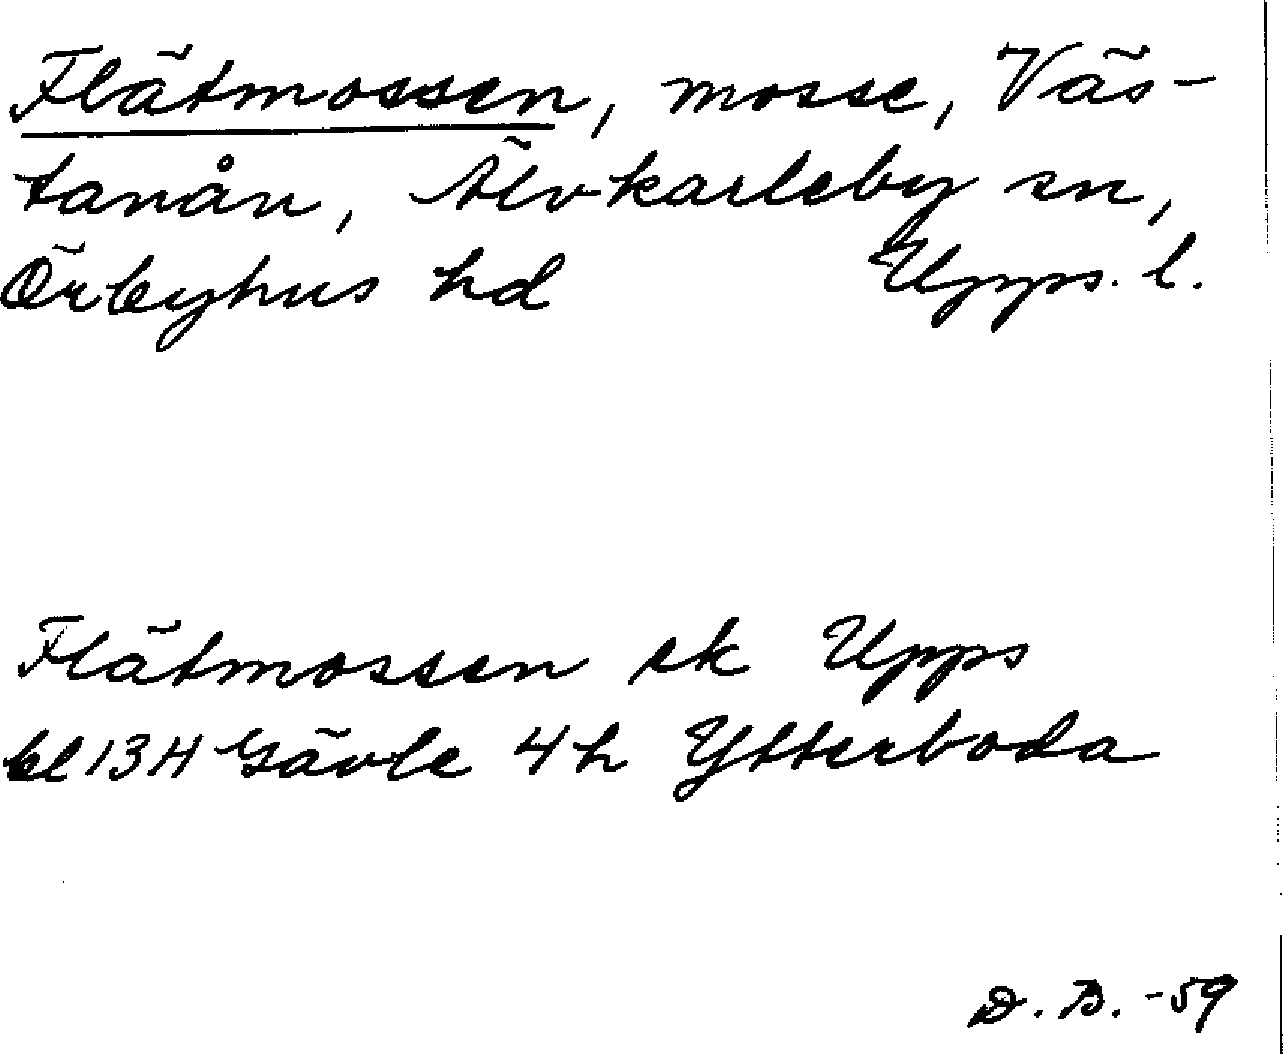 Flätmossen, mosse, Väs-
tanån, Älvkarleby sn,
Örbyhus hd Upps. l.
Flätmossen ek Upps
bl 13 H Gävle 4h Ytterboda
D. B. -59